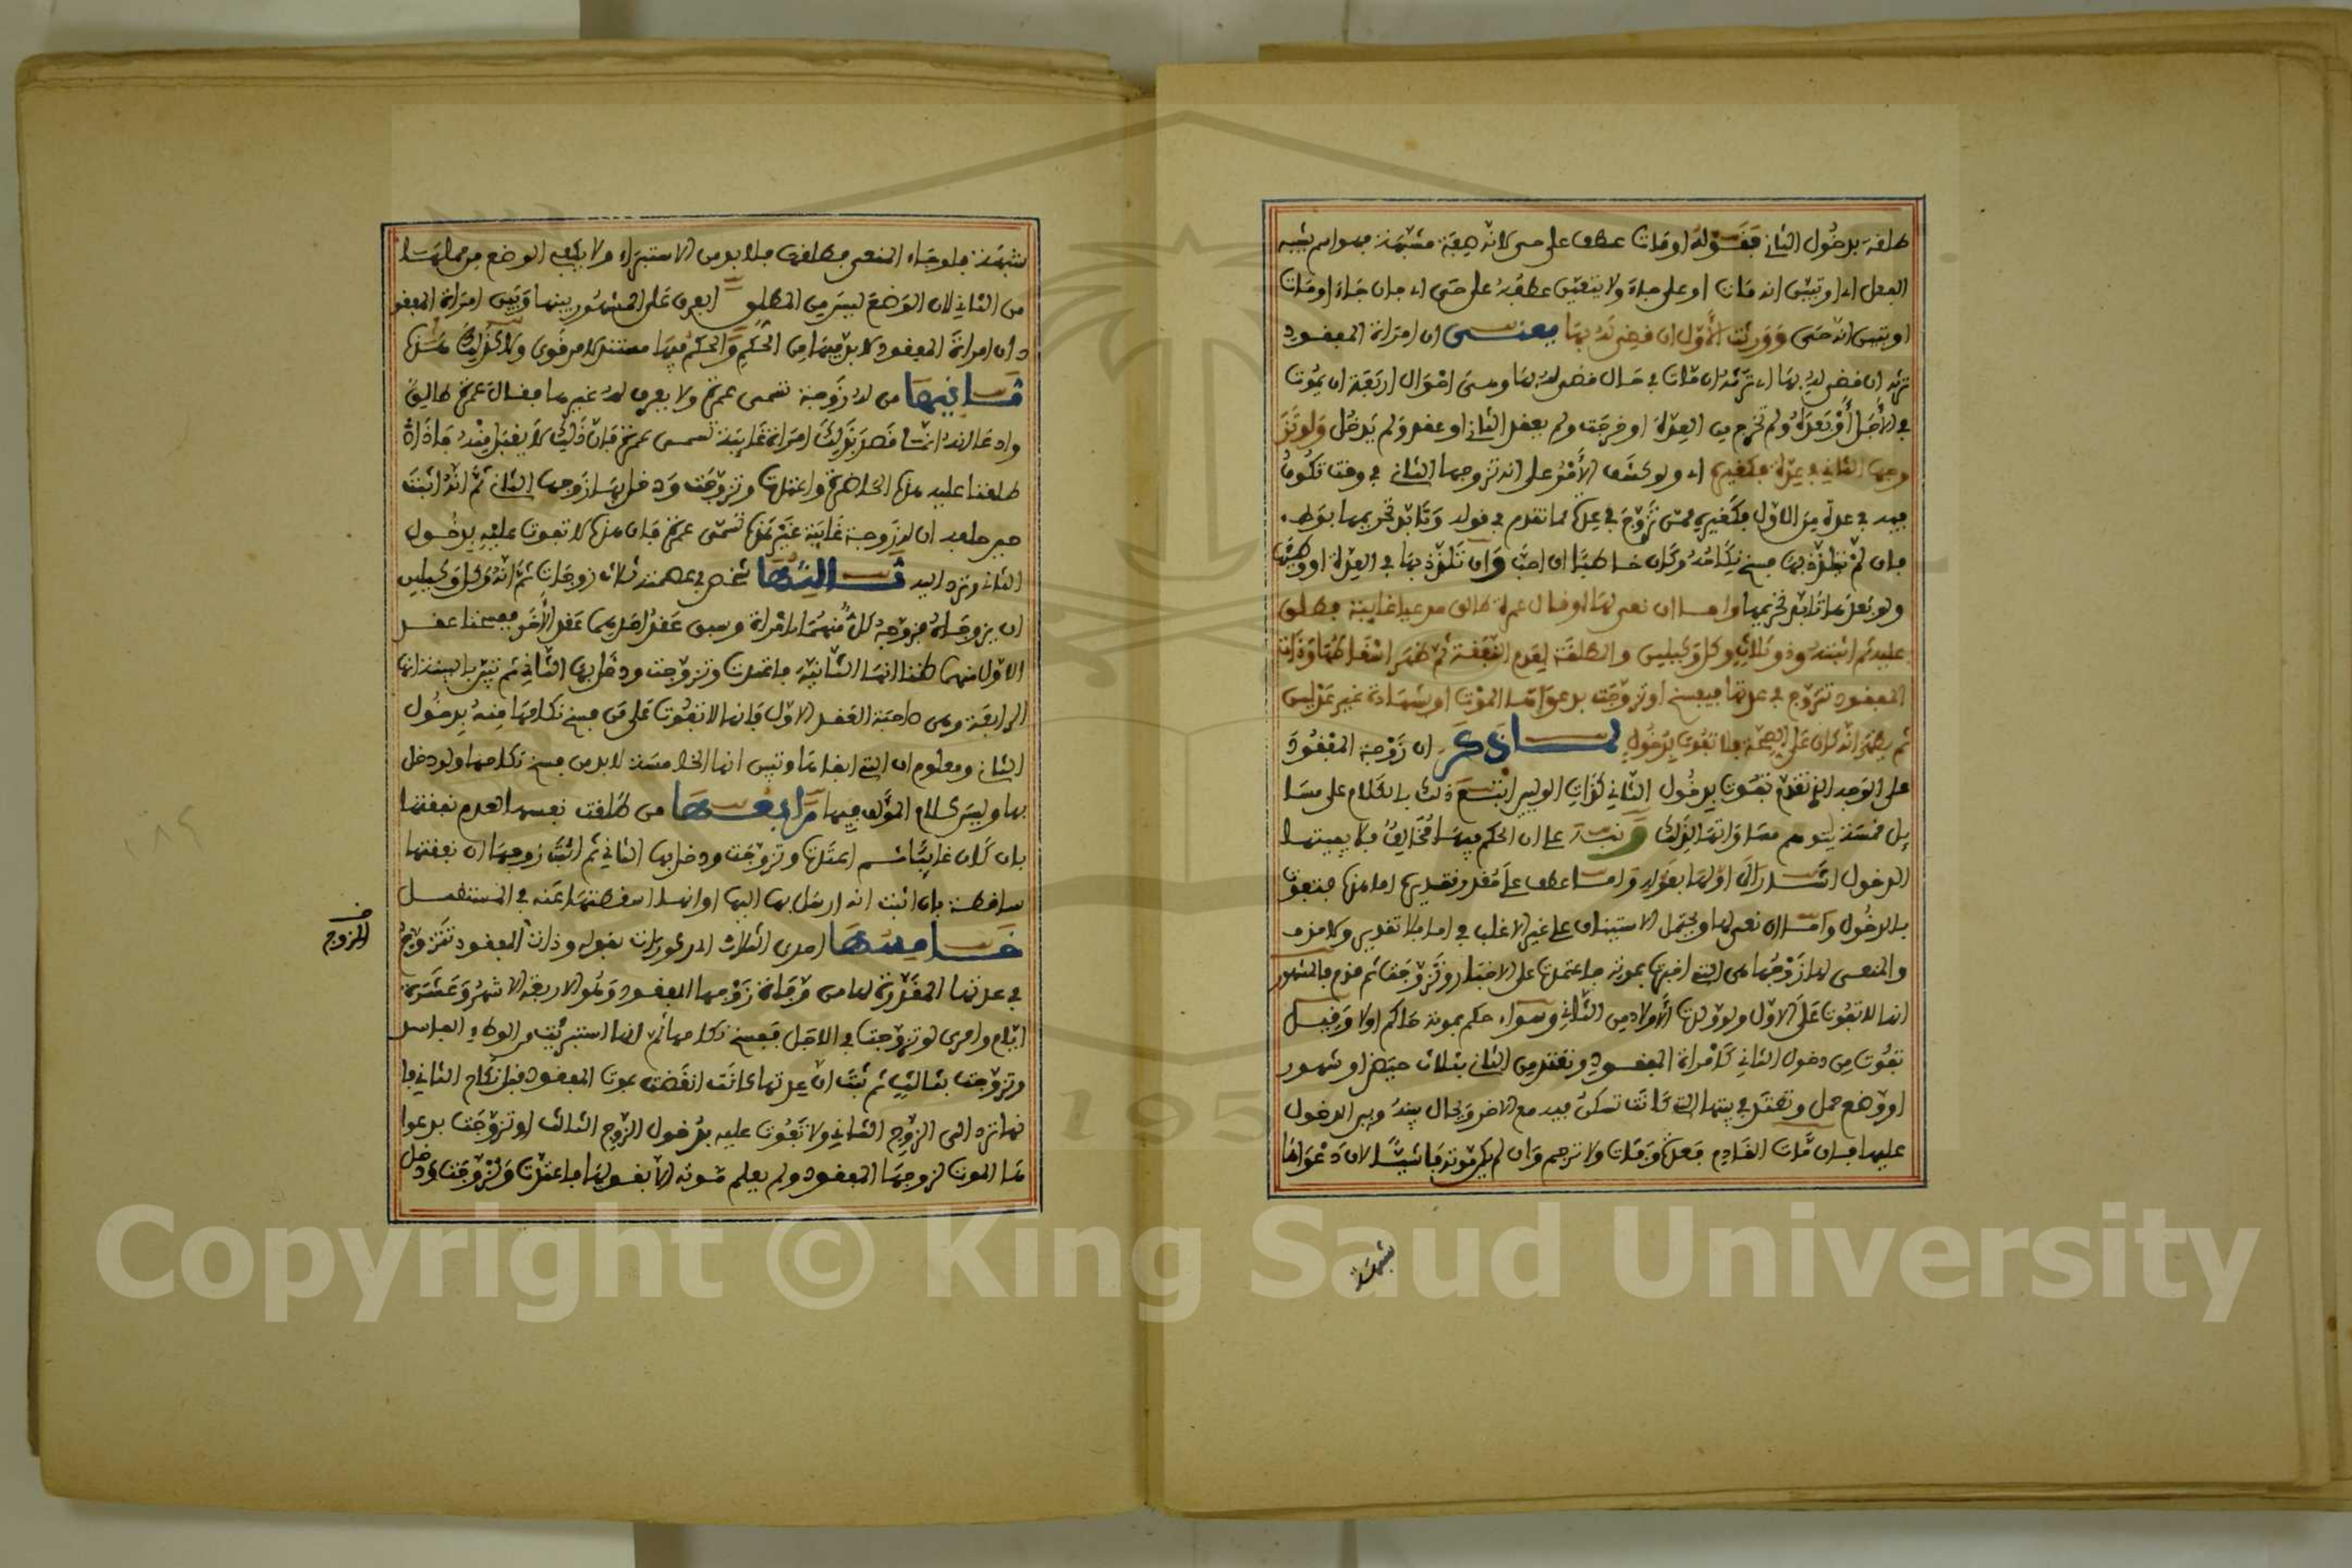 طلقة بدخول الثاني فقوله او مات عطف على حي لانه صفة مشبهة فهو اسم يشبه
الفعل اي او تبين انه مات او على جاء ولا يتعين عطفه على حي اي فان جاء او مات
او تبين انه حي وورثت الأول ان قضي له بها معنى ان امراة المفقود
ترثه ان قضي له بها اي ترثه ان مات في حال قضي له بها وهي احوال اربعة ان يموت
في الأجل أو بعده ولم تخرج من العدة او خرجت ولم يعقد الثاني او عقد ولم يدخل ولو تز
وجها الثاني في عدة فكغيره اي ولو كشف الأمر على انه تزوجها الثاني في وقت تكون
فيه في عدة من الاول فكغيره ممن تزوج في عدة مما تقدم في قوله وتابد تحريمها بوطء
فان لم يتلذذ بها فسخ نكاحه وكان خاطبا ان احب وان تلذذ بها في العدة او وطئها
ولو بعدها تابد تحريمها واما ان نعي لها او قال عمرة طالق مدعيا غايبة فطلق
عليه ثم اثبته وذو ثلاث وكل وكيلين والمطلقة لعدم النفقة ثم ظهر اسقاطها وذات
المفقود تتزوج في عدتها فيفسخ او تزوجت بدعواها الموت او بشهادة غير عدلين
ثم يظهر انه كان على الصحة فلا تفوت بدخول لما ذكر ان زوجة المفقود
على الوجه الذي تقدم تفوت بدخول الثاني كذات الوليين اتبع ذلك بالكلام على مسا
يل خمسة يتوهم مساواتها لذلك ونبه على ان الحكم فيها مخالف فلا يفيتها
الدخول اشار الى اولها بقوله واما عطف على مقدر وتقديره اما هذه فتفوت
بالدخول واما ان نعي لها ويحتمل الاستيناف على غير الاغلب في اما بلا تقدير وكلام
والمنعي لها زوجها هي التي اخبرت بموته فاعتدت على الاخبار وتزوجت ثم قدم فالمشهور
انها لا تفوت على الاول ولو ولدت الأولاد من الثاني وسواء حكم بموته حاكم اولا وقيل
تفوت من دخول الثاني كامراة المفقود وتعتد من الثاني بثلاث حيض او شهور
او وضع حمل وتعتد في بيتها التي كانت تسكن فيه مع الاخر ويحال بينه وبين الدخول
عليها فان مات القادم فعدة وفات ولا ترجم وان لم يكن موته فاشيا لان دعواها
شبهة
شبهة فلو جاء المنعي فطلقها فلا بد من الاستبراء ولا يكفي الوضع من حملها
من الثاني لان الوضع ليس من المطلق الفرق على المشهور بينها وبين امراة المفقو
د ان امراة المفقود لا بد فيها من الحكم والحكم فيها مستند لامر قوي ولا كذلك هنا
ثانيها من له زوجة تسمى عمرة ولا يعرف له غيرها فقال عمرة طالق
وادعى انه انما قصد بذلك امراة غايبة تسمى عمرة فان ذلك لا يقبل منه فاذا
طلقنا عليه هذه الحاضرة واعتدت وتزوجت ودخل بها زوجها الثاني ثم انه اثبت
حين طلق ان له زوجة غايبة غير هذه تسمى عمرة فان هذه لا تفوت عليه بدخول
الثاني وترد اليه ثالثها شخص في عصمته ثلاث زوجات ثم انه وكل وكيلين
ان يزوجاه فزوجه كل منهما امراة وسبق عقد احدهما عقد الأخر ففسخنا عقد
الاول منهما ظنا انها الثانية فاعتدت وتزوجت ودخل بها الثاني ثم تبين بالبينة انها
الرابعة وهي صاحبة العقد الاول فانها لا تفوت على من فسخ نكاحها منه بدخول
الثاني ومعلوم ان التي ابقاها وتبين انها الخامسة لابد من فسخ نكاحها ولو دخل
بها وليس كلام المؤلف فيها رابعها من طلقت نفسها لعدم نفقتها
بان كان غايبا ثم اعتدت وتزوجت ودخل بها الثاني ثم اثبت زوجها ان نفقتها
ساقطة بان اثبت انه ارسل بها اليها او انها اسقطتها عنه في المستقبل
خامسها احدى الثلاث المدخولات بقوله وذات المفقود تتزوج
في عدتها المقدرة لها من وفاة زوجها المفقود وهو الاربعة الاشهر وعشرة
ايام واحرى لو تزوجت في الاجل ففسخ نكاحها ثم انها استبرئت من الوطء الفاسد
وتزوجت بثالث ثم ثبت ان عدتها كانت انقضت بموت المفقود قبل نكاح الثاني فا
نها ترد الى الزوج الثاني ولا تفوت عليه بدخول الزوج الثالث او تزوجت بدعوا
ها الموت لزوجها المفقود ولم يعلم موته الا بقولها فاعتدت وتزوجت ودخل
المزوج
Copyright © King Saud University
195